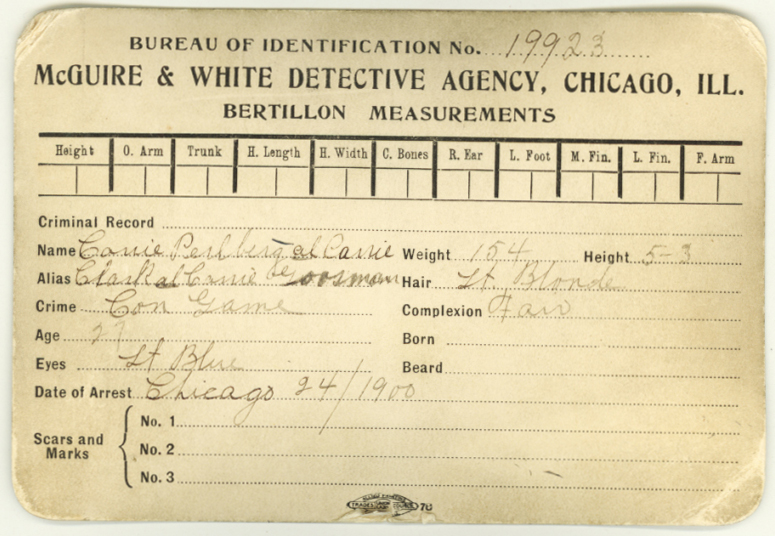 BUREAU OF IDENTIFICATION No. 19923
McGUIRE & WHITE DETECTIVE AGENCY, CHICAGO, ILL.
BERTILLON MEASUREMENTS
Height O. Arm Trunk H. Length H. Width C. Bones R. Ear L. Foot M. Fin. L. Fin. F. Arm
Criminal Record
Name Carrie Perlberg al Carrie Weight 154 Height 5-3
Alias Clark al Carrie Hair Lt. Blonde
Crime Con Game Complexion Fair
Age 27 Born
Eyes Lt Blue Beard
Date of Arrest Chicago 24/1900
Scars and Marks
No. 1
No. 2
No. 3